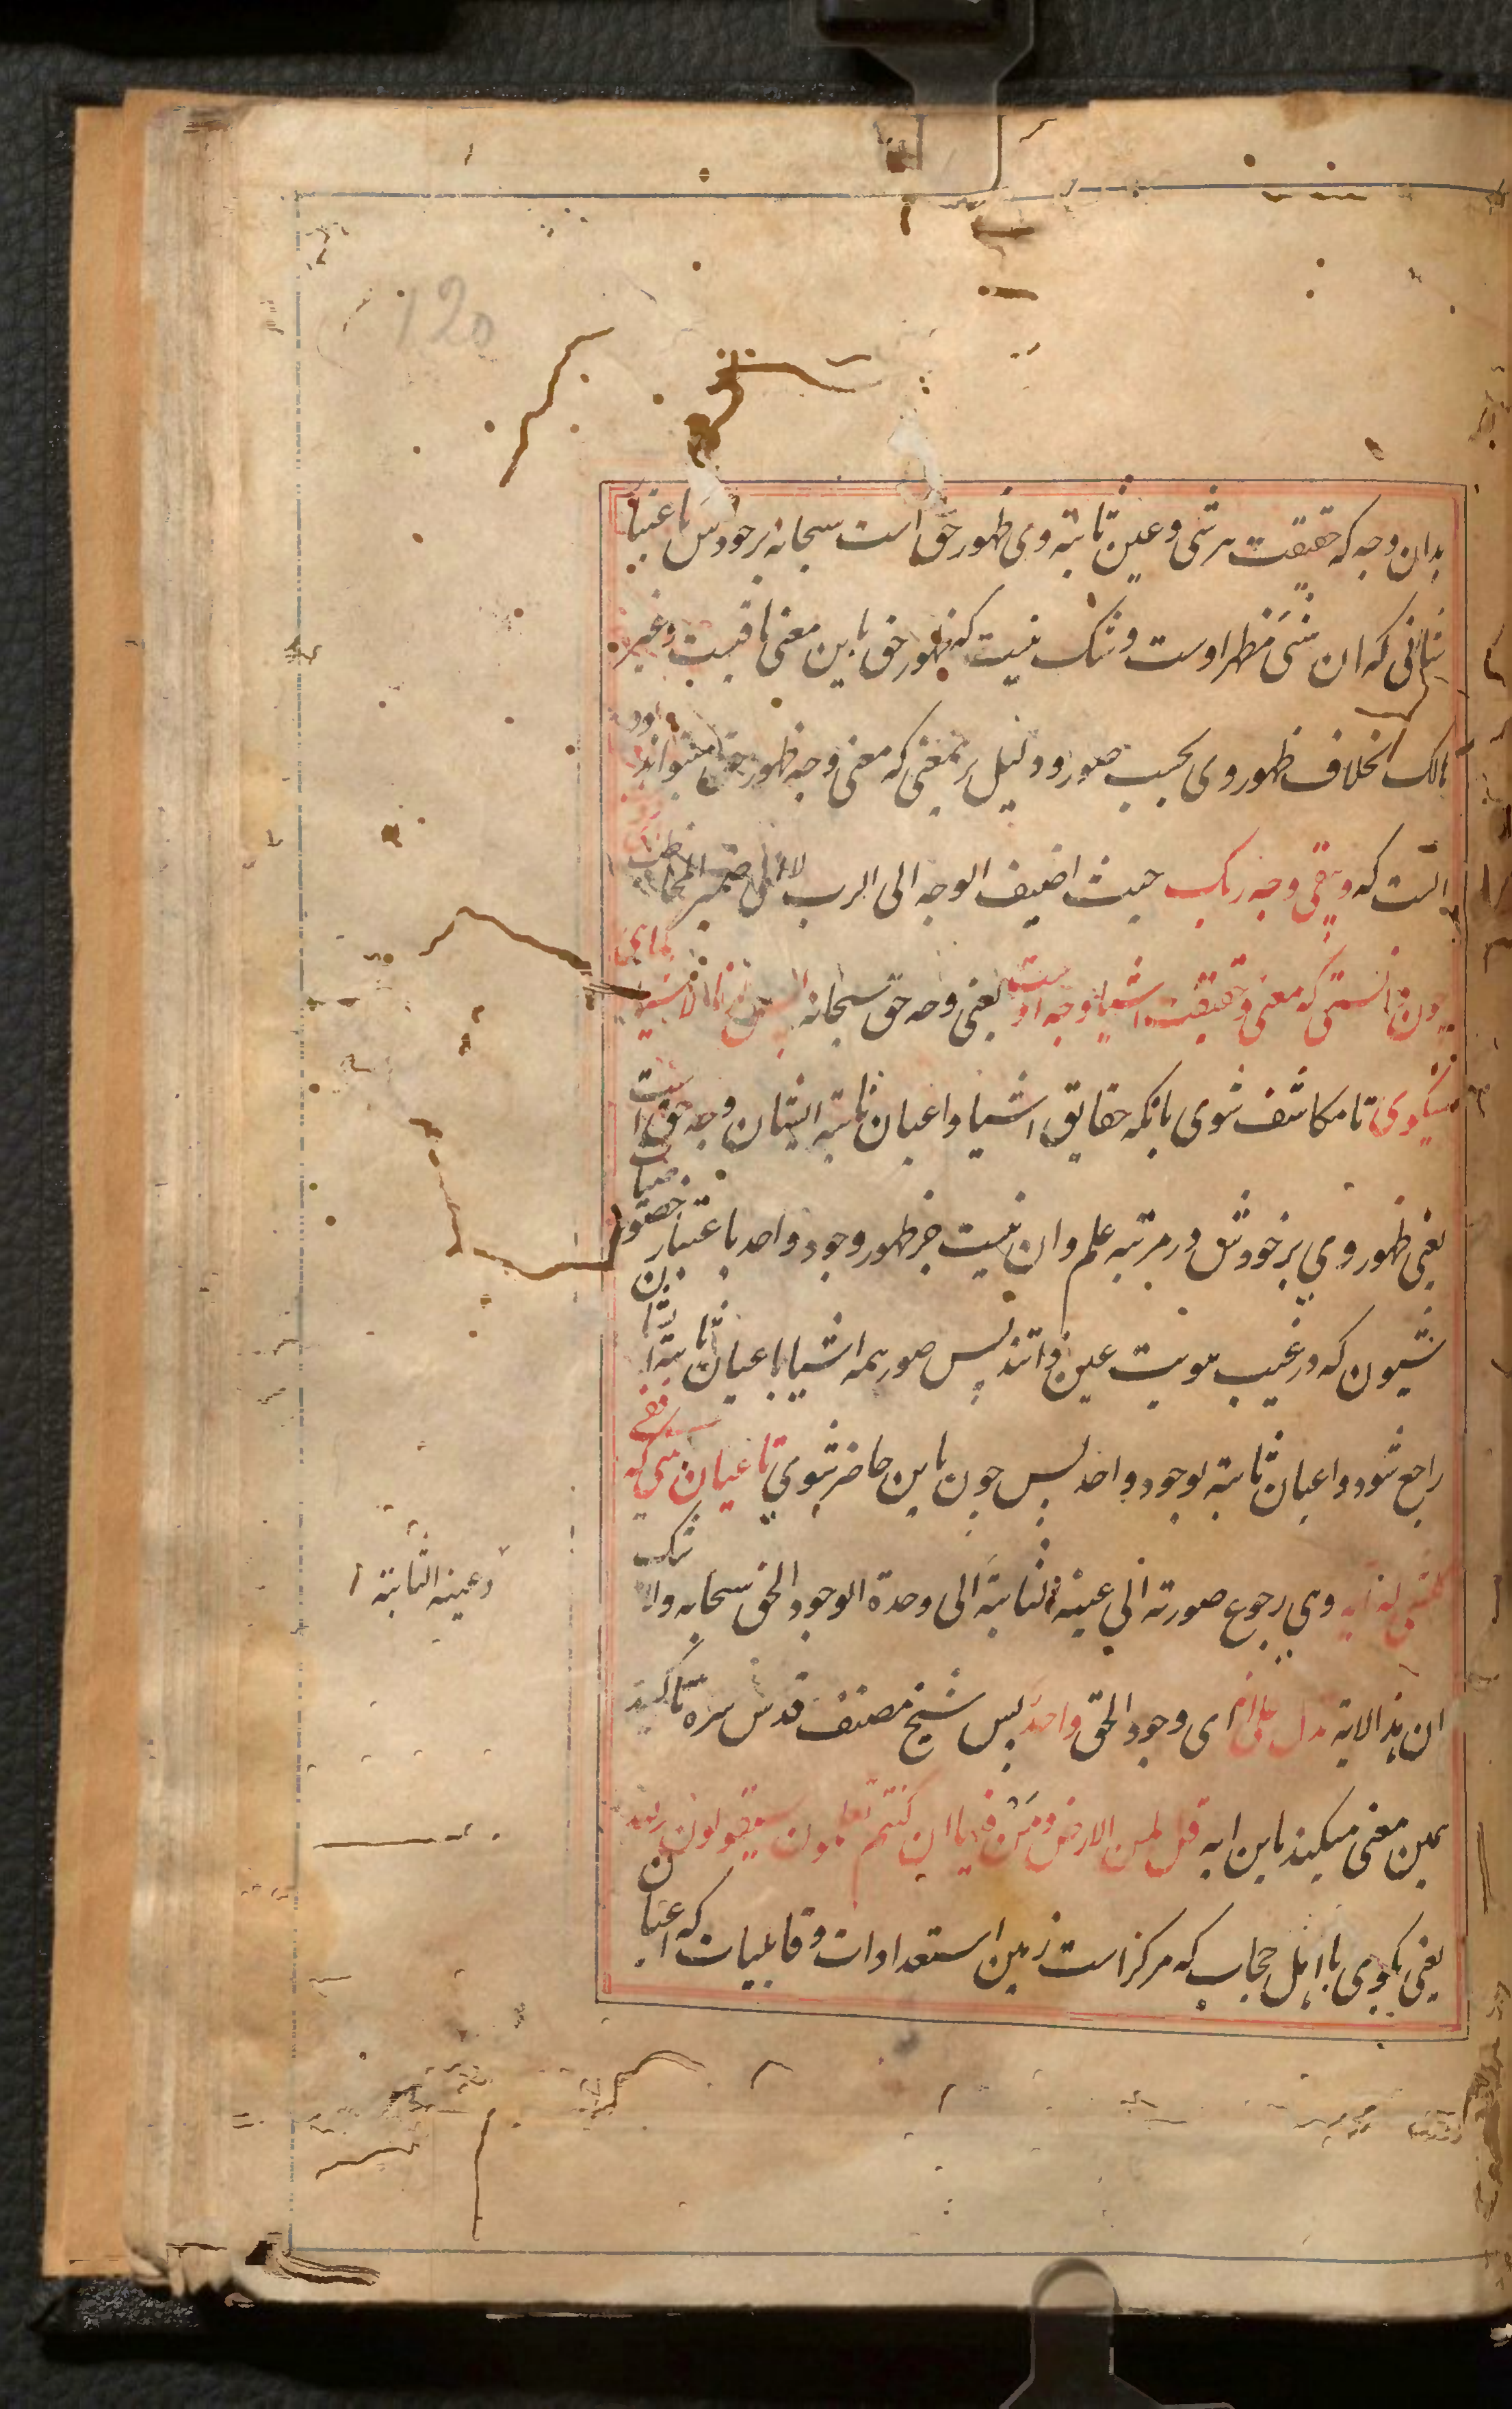 120
بدان وجه که حقیقت هر شی و عین ثابته وی ظهور حق است سبحانه بر خودش باعتبار
شانی که ان شی مظهر اوست و شک نیست که ظهور حق باین معنی باقیست و غیر
هالک بخلاف ظهور وی بحسب صور و دلیل بر معنی که معنی وجه ظهور حق میتواند بود
انست که ویبقی وجه ربک حیث اضیف الوجه الی الرب لا الی ضمیر المخاطب
چون دانستی که معنی و حقیقت اشیا وجه اوست یعنی وجه حق سبحانه ارنا الاشیا کما هی
میکوی تا مکاشف شوی بانکه حقایق اشیا و اعیان ثابته ایشان وجه حق است
یعنی ظهور وی بر خودش در مرتبه علم و ان نیست جز ظهور وجود واحد باعتبار خصوصیات
شیون که در غیب هویت عین ذاتند پس صور همه اشیا با عیان ثابته
راجع شود و اعیان ثابته بوجود واحد پس چون باین حاضر شوی تا عیان بینی که ففی
کل شی له ایه وهی رجوع صورته الی عینه الثابتة الی وحدة الوجود الحق سبحانه ولا شک
وعینه الثابتة
ان هذا الایة تدل علی انه ای وجود الحق واحد پس شیخ مصنف قدس سره تاکید
همین معنی میکند باین ایه قل لمن الارض ومن فیها ان کنتم تعلمون سیقولون لله
یعنی بکوی با اهل حجاب که مرکز است زمین استعدادات و قابلیات که اعیان